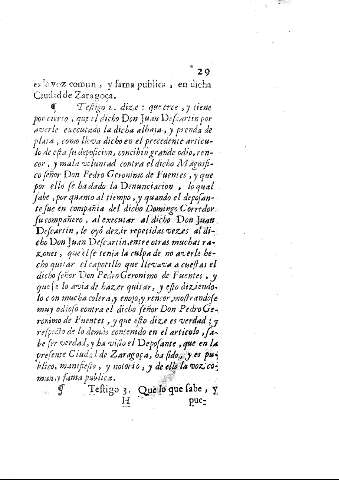 29
es la voz comun, y fama publica, en dicha
Ciudad de Zaragoça.
¶ Testigo 2. dize: que cree, y tiene
por cierto, que el dicho Don Juan Descartin por
averle executado la dicha alhaja, y prenda de
plata, como lleva dicho en el precedente articu-
lo de esta su deposicion, concibiò grande odio, ren-
cor, y mala voluntad contra el dicho Magnifi-
co señor Don Pedro Geronimo de Fuentes, y que
por ello se ha dado la Denunciacion, lo qual
sabe, por quanto al tiempo, y quando el deposan-
te fue en compañia del dicho Domingo Corredor
su compañero, al executar al dicho Don Juan
Descartin, le oyò dezir repetidas vezes al di-
cho Don Juan Descartin, entre otras muchas ra-
zones, que èl se tenia la culpa de no averle he-
cho quitar el capotillo que llevava a cuestas el
dicho señor Don Pedro Geronimo de Fuentes, y
que se lo avia de hazer quitar, y esto diziendo-
lo con mucha colera, y enojo, y rencor, mostrandose
muy odioso contra el dicho señor Don Pedro Ge-
ronimo de Fuentes, y que esto dize es verdad; y
respecto de lo demàs contenido en el articulo, sa-
be ser verdad, y ha visto el Deposante, que en la
presente Ciudad de Zaragoça, ha sido, y es pu-
blico, manifiesto, y notorio, y de ello la voz co-
mun, y fama publica.
¶ Testigo 3. Que lo que sabe, y
H puc-